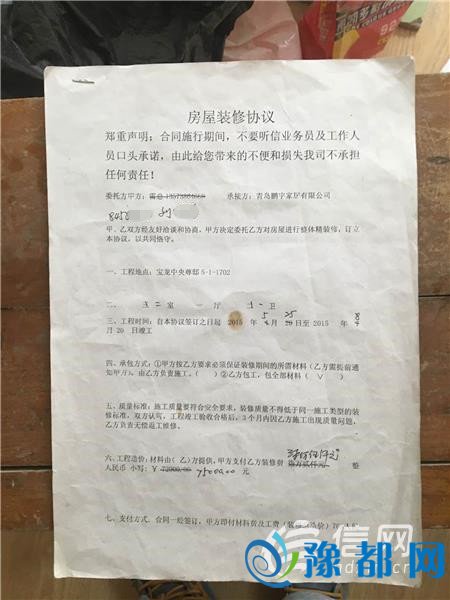 房屋装修协议
郑重声明：合同施行期间，不要听信业务员及工作人
员口头承诺，由此给您带来的不便和损失我司不承担
任何责任！
委托方甲方： 承接方：青岛鹏宇家居有限公司
甲、乙双方经友好洽谈和协商，甲方决定委托乙方对房屋进行整体精装修，订立
本协议，以共同恪守。
一、工程地点：宝龙中央尊邸 5-1-1702
二、 室 一 厅 卫
三、工程时间：自本协议签订之日起 2015 年 5 月 25 日至 2015 年 8
月 20 日竣工
四、承包方式：①甲方按乙方要求必须保证装修期间的所需材料（乙方需提前通
知甲方），由乙方负责施工。（ ）②乙方包工，包全部材料（ √ ）
五、质量标准：施工质量要符合安全要求，装修质量不得低于同一施工类型的装
修标准，双方认可，工程竣工验收合格后，3个月内因乙方施工出现质量问题，
乙方负责无偿返工维修。
六、工程造价：材料由（ 乙）方提供，甲方支付乙方装修费 整
人民币 小写：￥72000.00 75000.00 元
七、支付方式、合同一经签订，甲方即付材料费及工费
信网
豫都网